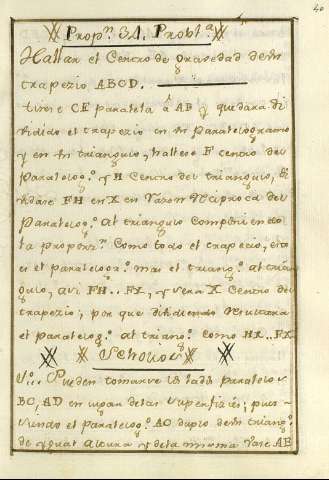 40
Propn. 31. Probl.a
Hallar el Centro de Gravedad de un
trapezio ABCD.
tirese CE paralela à AB y quedarà di
vidido el trapezio en un paralelogramo
y en un triangulo, hallese F centro del
paralelog.o y H Centro del triangulo, di
vidase FH en X en razon reciproca del
paralelog.o al triangulo componiendo
la proporn. Como todo el trapecio, esto
es el paralelogr.o mas el triang.o al trian
gulo, asi FH.. FX, y sera X Centro del
trapezio; por que dividiendo resultara
el paralelog.o al triang.o como HX.. FX
Scholio
Pueden tomarse los lados paralelos
BC, AD en lugar de las superficies; pues
siendo el paralelog.o AC duplo del triang.o
de ygual altura y de la misma vase AE